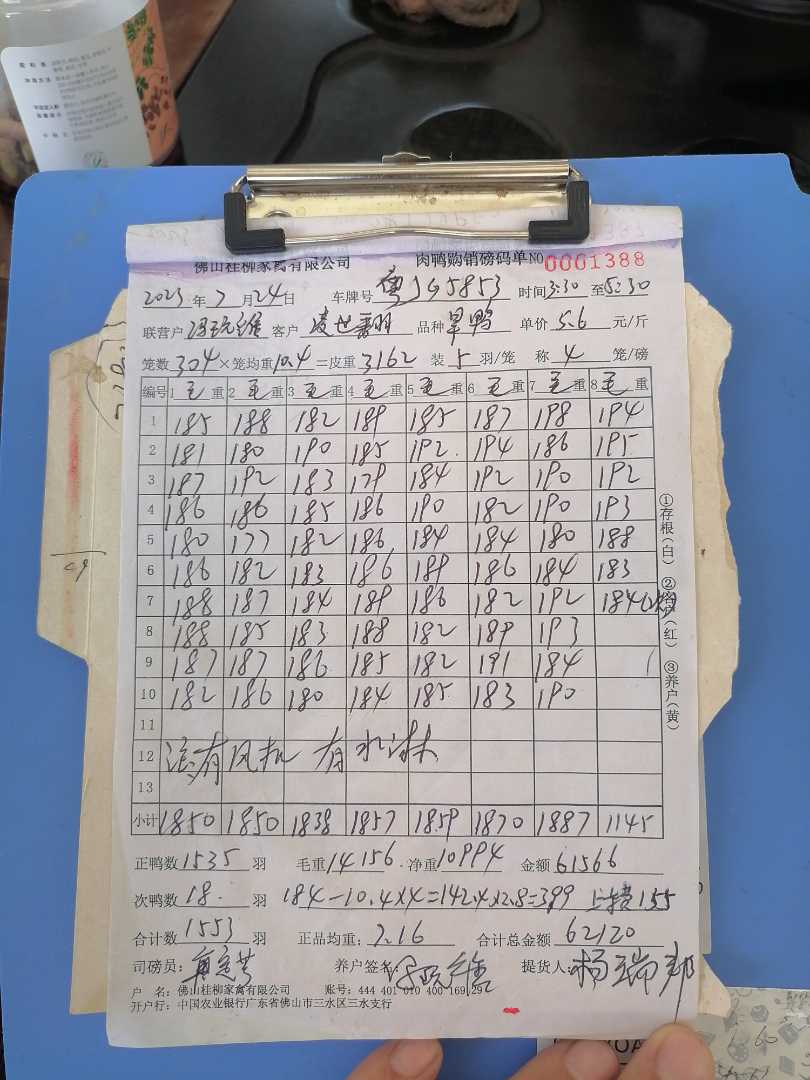 佛山桂柳家禽有限公司 肉鸭购销磅码单NO 0001388
2023年7月24日 车牌号 粤J G5853 时间3:30至5:30
联营户 客户 凌世翻 品种 旱鸭 单价 5.6 元/斤
笼数 304 ×笼均重 10.4 =皮重 3162 装 5 羽/笼 称 4 笼/磅
编号 1 毛重 2 毛重 3 毛重 4 毛重 5 毛重 6 毛重 7 毛重 8 毛重
1 185 188 182 189 185 187 198 194
2 181 180 190 185 192 194 186 195
3 187 192 183 179 184 192 190 192
4 186 186 185 186 190 182 190 193
5 180 177 182 186 184 184 180 188
6 186 182 183 186 189 186 184 183
7 188 187 184 189 186 182 192 184
8 188 185 183 188 182 189 193
9 187 187 186 185 182 191 184
10 182 186 180 184 185 183 190
11
12 没有风机 有水淋
13
小计 1850 1850 1838 1857 1859 1870 1887 1145
正鸭数 1535 羽 毛重 14156 净重 10994 金额 61566
次鸭数 18 羽 184-10.4×4=142.4×2.8=399 155
合计数 1553 羽 正品均重: 7.16 合计总金额 62120
司磅员: 养户签名: 提货人: 杨瑞邦
户 名: 佛山桂柳家禽有限公司 账号: 444 401 010 400 169 29
开户行: 中国农业银行广东省佛山市三水区三水支行
①存根(白) ②客户(红) ③养户(黄)